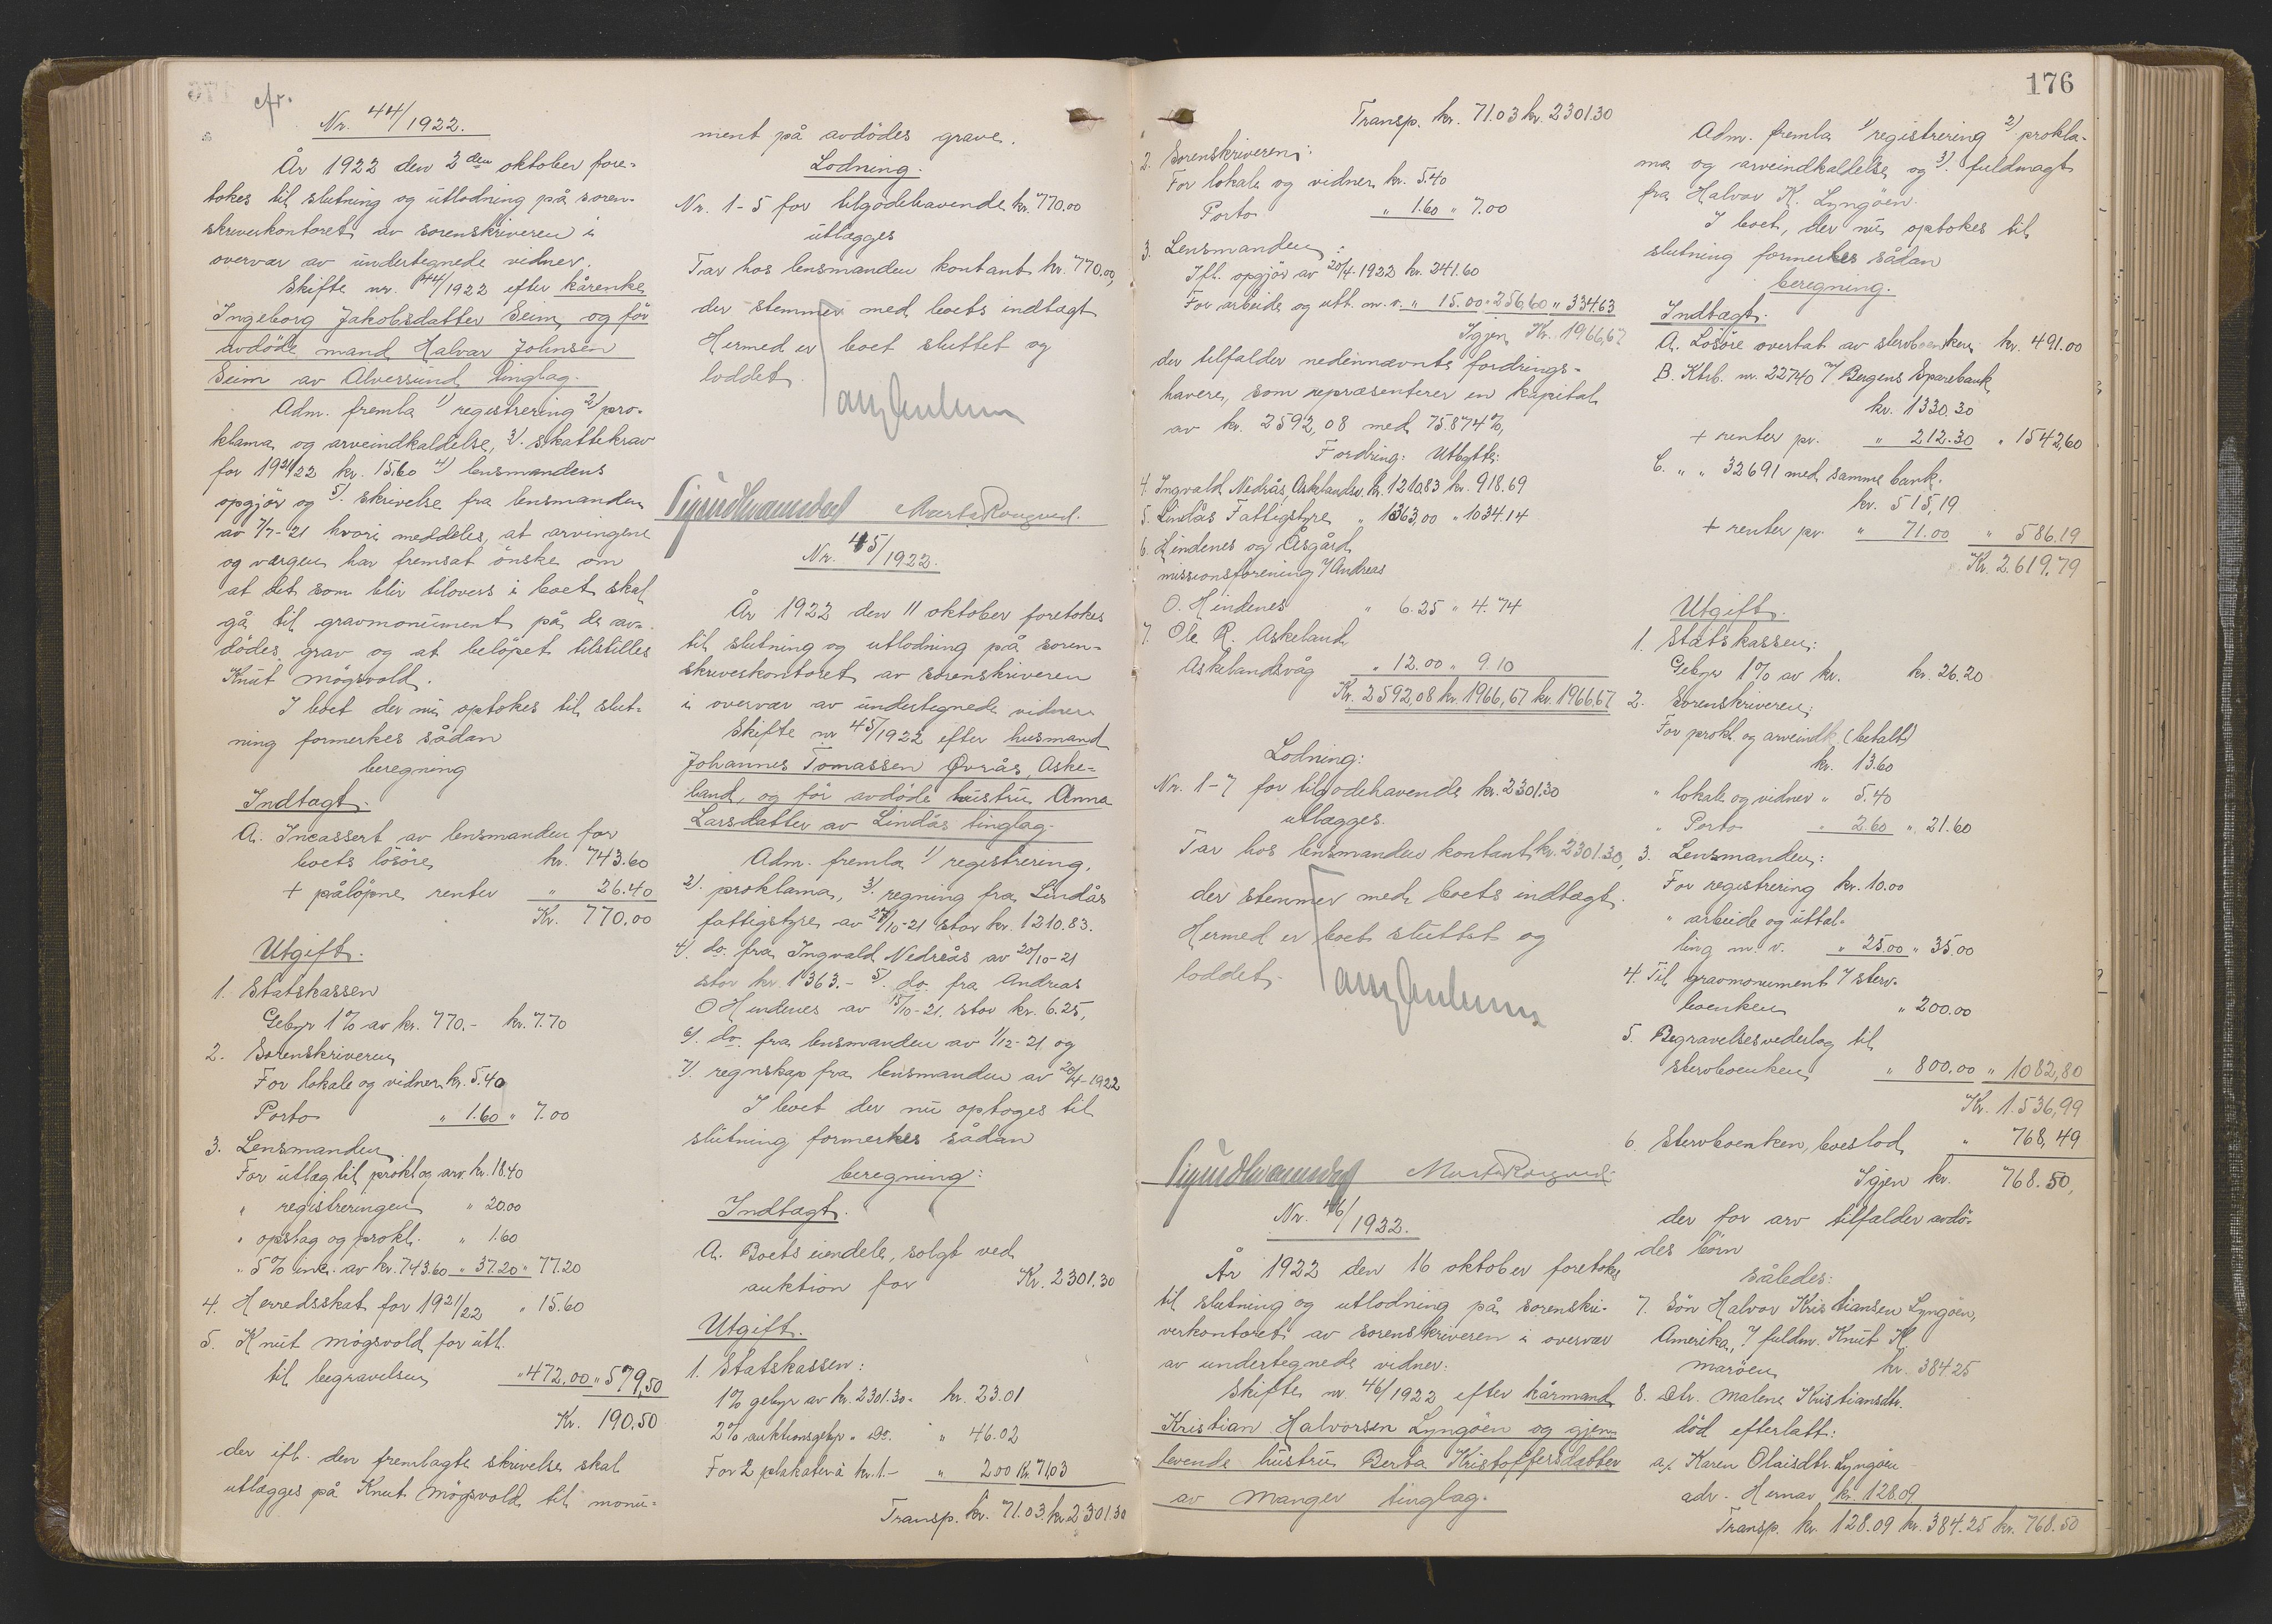 cfr.
Nr. 44/1922.
År 1922 den 2den oktober fore-
tokes til slutning og utlodning på soren-
skriverkontoret av sorenskriveren i
overvær av undertegnede vidner.
Skifte nr. 44/1922 efter kårenke
Ingeborg Jakobsdatter Seim, og før
avdöde mand Halvar Johnsen
Seim av Alversund tinglag.
Adm. fremla 1) registrering 2) pro-
klama og arveindkaldelse, 3). skattekrav
for 1921/22 kr. 15.60 4) lensmandens
opgjör og 5). skrivelse fra lensmanden
av 7/7-21 hvori meddeles, at arvingene
og værgen har fremsat önske om
at det som blir tilovers i boet skal
gå til gravmonument på de av-
dödes grav og at belöpet tilstilles
Knut Mögsvold.
I boet der nu optokes til slut-
ning formerkes sådan
beregning
Indtægt.
A. Incassert av lensmanden for
boets lösöre kr. 743.60
+ pålöpne renter " 26.40
Kr. 770.00
Utgift.
1. Statskassen
Gebyr 1% av kr. 770.- kr. 7.70
2. Sorenskriveren
For lokale og vidner kr. 5.40
Porto " 1.60 " 7.00
3. Lensmanden
For utlæg til prokl og arv. kr. 18.40
" registreringen " 20.00
" opslag og prokl. " 1.60
" 5% inc. av kr. 743.60 " 37.20 " 77.20
4. Herredsskat for 1921/22 " 15.60
5. Knut Mögsvold for utl.
til begravelsen " 472,00 " 579,50
Kr. 190,50
der ifl. den fremlagte skrivelse skal
utlægges på Knut Mögsvold til monu-
ment på avdödes grave.
Lodning.
Nr. 1-5 for tilgodehavende kr. 770.00
utlægges
Tar hos lensmanden kontant kr. 770.00,
der stemmer med boets indtægt
Hermed er boet sluttet og
loddet.
Nr. 45/1922.
År 1922 den 11 oktober foretokes
til slutning og utlodning på soren-
skriverkontoret av sorenskriveren
i overvær av undertegnede vidner
Skifte nr 45/1922 efter husmand
Johannes Tomassen Øvrås, Aske-
land, og för avdöde hustru Anna
Larsdatter av Lindås tinglag.
Adm. fremla 1) registrering,
2). proklama, 3). regning fra Lindås
fattigstyre av 27/10-21 stor kr. 1210.83.
4). do. fra Ingvald Nedreås av 20/10-21
stor kr. 1363.- 5). do. fra Andreas
O Hindenes av 15/10-21. stor kr. 6.25,
6). do. fra lensmanden av 1/12-21 og
7). regnskap fra lensmanden av 20/4-1922
I boet der nu optoges til
slutning formerkes sådan
beregning:
Indtægt.
A. Boets eiendele, solgt ved
auktion for Kr. 2301.30
Utgift.
1. Statskassen:
1% gebyr av kr. 2301.30- kr. 23.01
2% auktionsgebyr " Do. " 46.02
For 2 plakater à kr. 1.- " 2.00 Kr. 71,03
Transp. kr. 71.03. kr. 2301.30
176
Transp. kr. 71.03 kr. 2301.30
2. Sorenskriveren:
For lokale og vidner kr. 5.40
Porto " 1.60 " 7.00
3. Lensmanden:
Ifl. opgjör av 20/4-1922 kr. 241.60
For arbeide og utt. m.v. " 15.00 " 256.60 " 334.63
Igjen Kr. 1966,67
der tilfalder nedennævnte fordrings-
havere, som repræsenterer en kapital
av kr. 2592,08 med 75.874%,
Fordring: Utbytte:
4. Ingvald Nedrås, Askelandsv. kr. 1210.83 kr. 918.69
5. Lindås Fattigstyre " 1363,00 " 1034.14
6. Hindenes og Åsgård
missionsforening v/ Andreas
O. Hindenes " 6.25 " 4.74
7. Ole R. Askeland
Askelandsvåg " 12.00 " 9.10
Kr. 2592,08 kr. 1966,67 kr. 1966.67
Lodning:
Nr. 1-7 for tilgodehavende kr. 2301.30
utlægges.
Tar hos lensmanden kontant kr. 2301.30,
der stemmer med boets indtægt.
Hermed er boet sluttet og
loddet.
Nr. 46/1922.
År 1922 den 16 oktober foretokes
til slutning og utlodning på sorenskri-
verkontoret av sorenskriveren i overvær
av undertegnede vidner:
Skifte nr. 46/1922 efter kårmand
Kristian Halvorsen Lyngöen og gjen-
levende hustru Berta Kristoffersdatter
av Manger tinglag.
Adm. fremla 1) registrering 2) prokla-
ma og arveindkaldelse og 3). fuldmagt
fra Halvor K. Lyngöen.
I boet, der nu optokes til
slutning formerkes sådan
beregning.
Indtægt.
A. Lösöre overtat av stervboenken kr. 491.00
B. Ktrb. nr. 22740 m/ Bergens Sparebank
kr. 1330.30
+ renter pr. " 212.30 " 1542,60
C. " " 32691 med samme bank.
kr. 515,19
+ renter pr. " 71.00 " 586.19
Kr. 2.619,79
Utgift.
1. Statskassen:
Gebyr 1% av kr. kr. 26.20
2. Sorenskriveren:
For prokl. og arveindk. (betalt)
kr. 13.60
" lokale og vidner " 5.40
" Porto " 2.60 " 21.60
3. Lensmanden:
For registrering kr. 10.00
" arbeide og uttal-
ling m. v. " 25.00 " 35.00
4. Til gravmonument v/ sterv-
boenken " 200.00
5. Begravelsesvederlag til
stervboenken " 800.00 " 1082,80
Kr. 1.536,99
6. Stervboenken, boeslod " 768,49
Igjen kr. 768.50,
der for arv tilfalder avdö-
des börn
således:
7. Sön Halvor Kristiansen Lyngöen,
Amerika, v/ fuldm. Knut K
Maröen kr. 384.25
8. Dtr. Malene Kristiansdtr.
död efterlatt:
a). Karen Olaisdtr. Lyngöen
adr. Hernar kr. 128.09
Transp. kr. 128.09 kr. 384.25 kr. 768.50